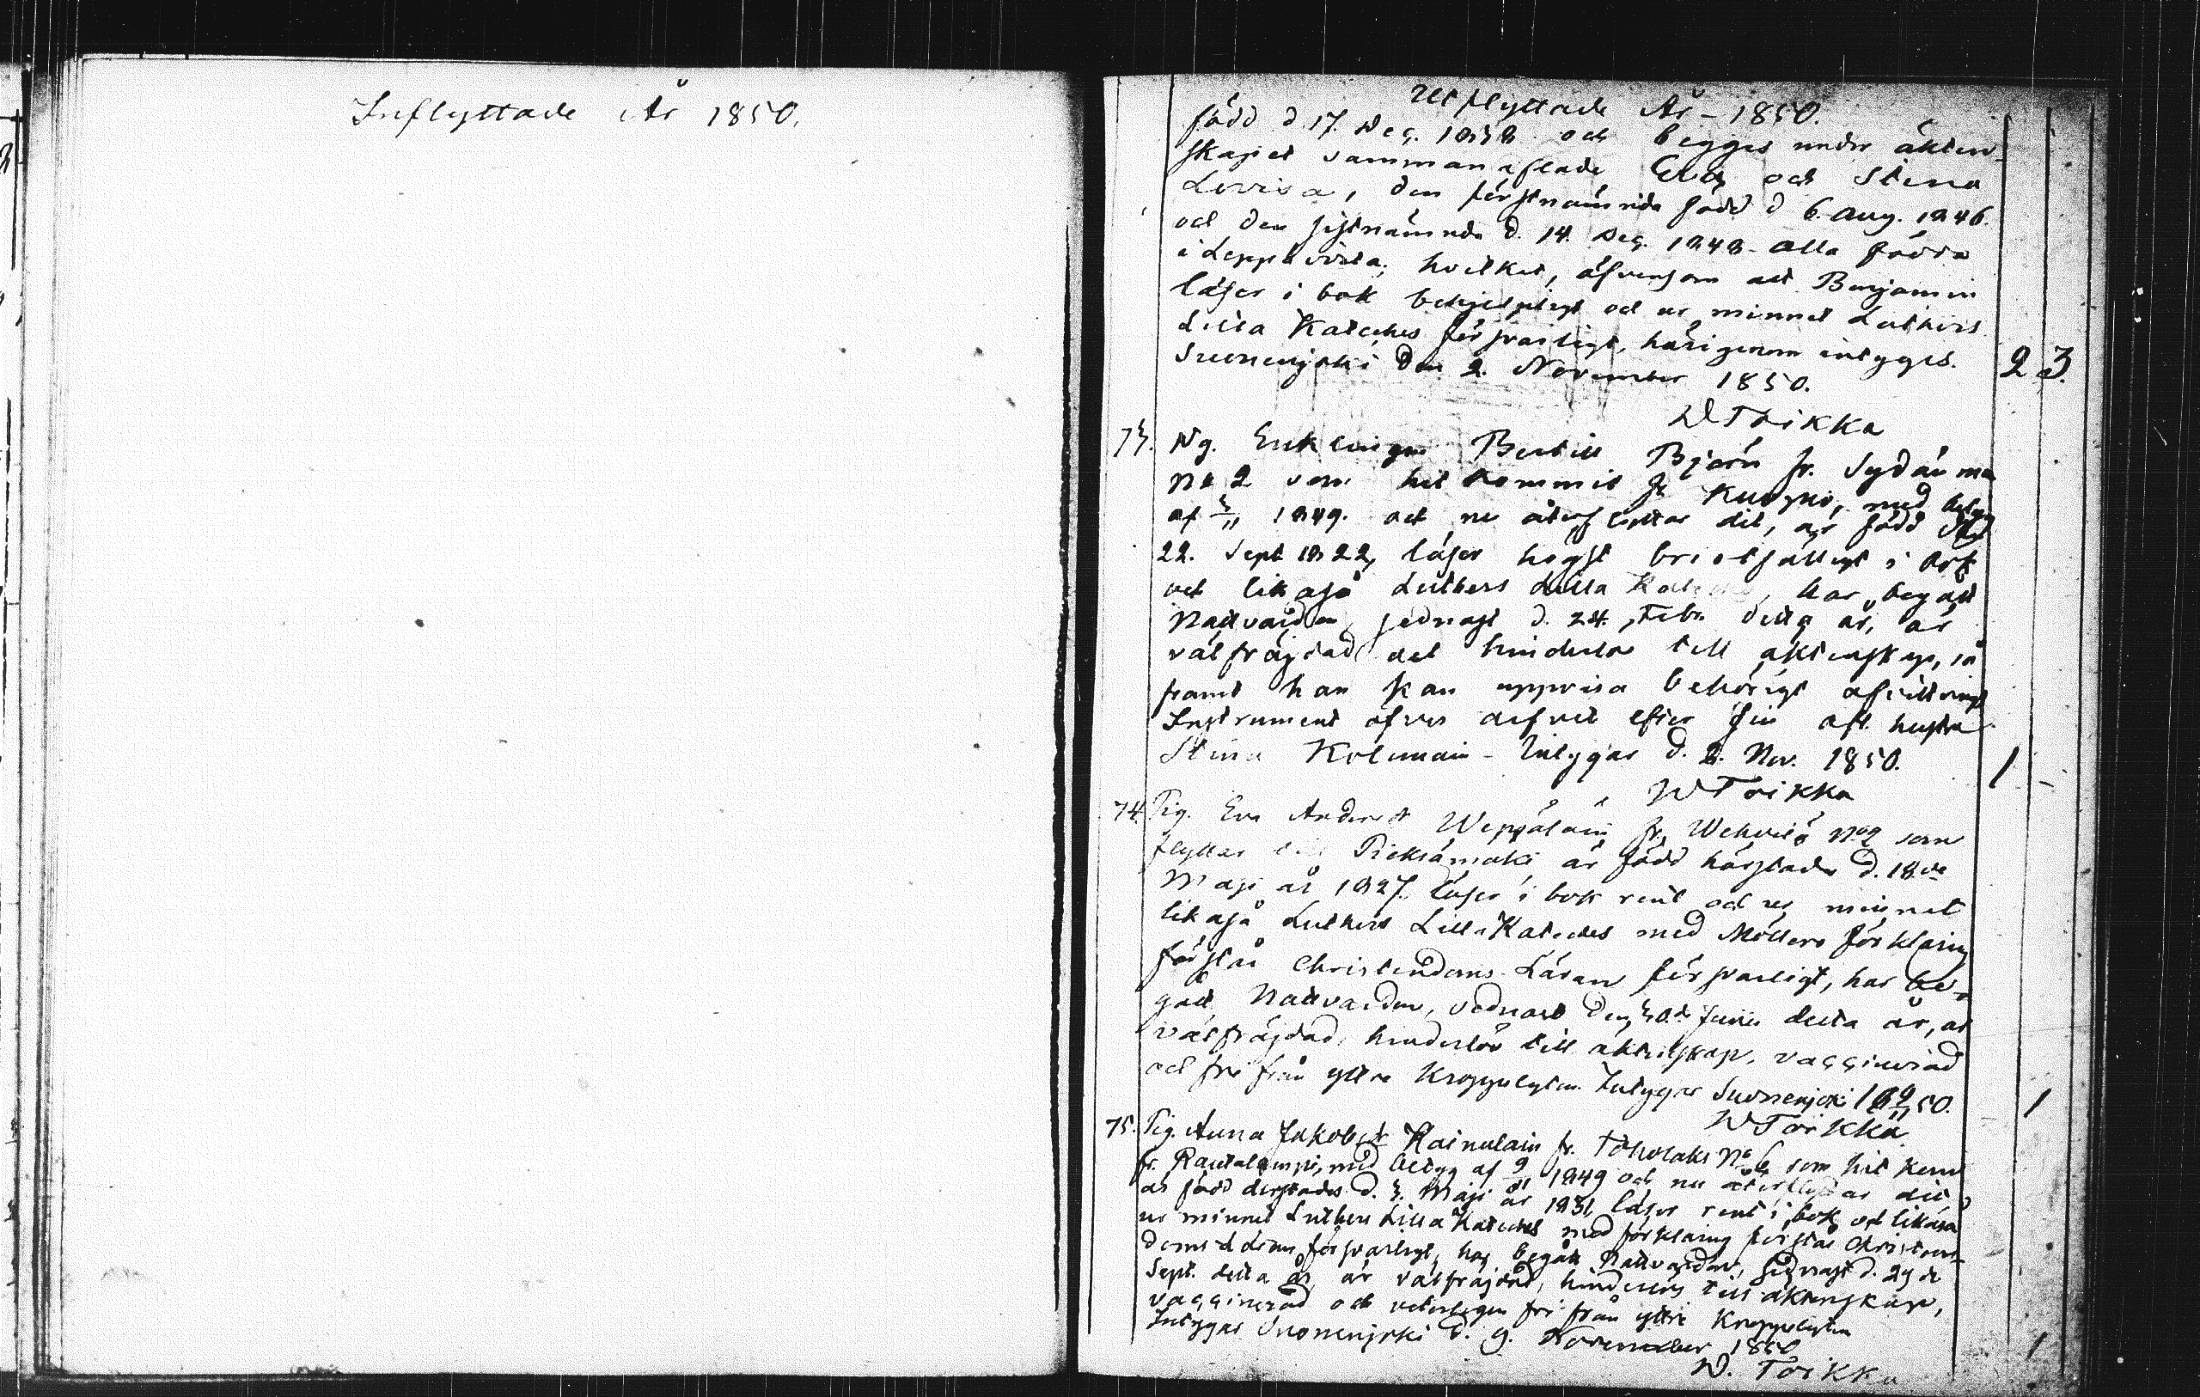 Inflyttade År 1850.
Utflyttade År - 1850.
född d 17. Dec. 1838 och begges under äkten-
skapet sammanaflade Eva och Stina
Lovisa, den förstnämnda född d 6. Aug. 1846.
och den sistnämnda d. 14. Dec. 1848 - alla födda
i Leppävirta; hvilket, äfvensom att Benjamin
läser i bok behjelpligt och ur minnet Luthers
Lilla Kateches försvarligt, härigenom intygges.
Suonenjoki den 2. November 1850.
2 3.
W Toikka
73. Ng. Enklingen Bertill Björn fr. Sydänma
No 2 som hit kommit fr Kuopio, med betyg
af 1849. och nu återflyttar dit, är född
22. Sept 1822, läser högst bristfälligt i bok
och likaså Luthers Lilla, har begått
Nattvarden sednast d. 24. Febr. detta år, är
välfräjdad och hinderlös till äktenskap, så
framt han kan uppvisa behörigt afvittrings
Instrument öfver arfvet efter sin afl. hustru
Stina - Intygar d. 2. Nov. 1850. 1 -
W Toikka
74. Pig. Eva Andersd Weppäläin fr. Wehvilä No 2 som
flyttar Pieksämäki är född härstädes d. 18de
Maji år 1827. läser i bok rent och ur minnet
likaså Luthers Lilla Kateches med Möllers förklaring
förstår Christendoms Läran försvarligt, har be-
gått Nattvarden, sednast den 30de Junii detta år, är
välfräjdad, hinderlös till äktenskap, vaccinerad
och fri från yttre Kroppslyten. Intygar Suonenjoki 18 50. - 1
W Toikka
75. Pig. Anna Jakobsdr Kainulain fr. Toholaks No 6 som hit kom
fr. Rautalampi, med betyg af 1849 och nu återflyttar dit
är född derstädes d. 3. Maji år 1831, läser rent i bok och likaså
ur minnet Luthers Lilla Kateches med förklaring förstår Christen-
doms Läran försvarligt, har begått Nattvarden, sednast d. 29de
Sept. detta år, är välfräjdad, hinderlös till äktenskap,
vaccinerad och veterligen fri från yttre Kroppslyten
Intygar Suonenjoki d. 9. November 1850 1
W. Toikka